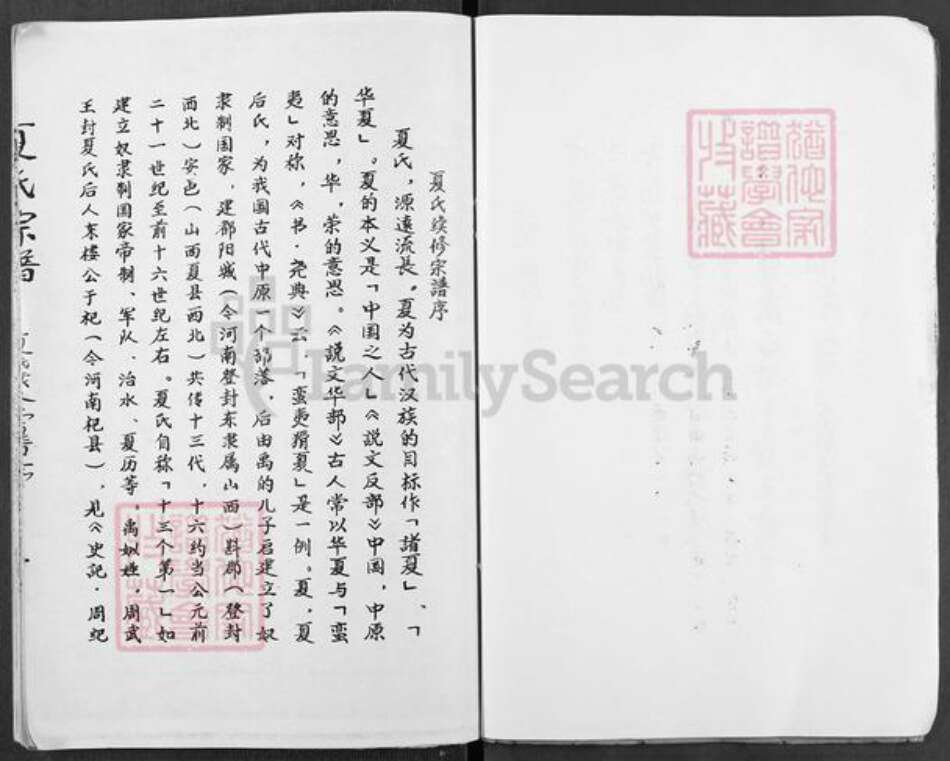 夏氏续修宗譜序
夏氏，源遠流長。夏为古代汉族的目标作「諸夏」、「
华夏」。夏的本义是「中国之人」《说文反部》中国，中原
的意思，华，荣的意思。《說文华部》古人常以华夏与「蛮
夷」对称，《书·尧典》云，「蛮夷猾夏」是一例。夏，夏
后氏，为我国古代中原一个部落，后由禹的儿子启建立了奴
隶制国家，建都阳城（今河南登封东隶属山西）斟鄩（登封
西北）安邑（山西夏县西北）共传十三代，十六约当公元前
二十一世纪至前十六世纪左右。夏氏自称「十三个第一」如
建立奴隶制国家帝制、军队、治水、夏历等。禹姒姓，周武
王封夏氏后人东楼公于杞（今河南杞县），见《史記·周纪
夏氏宗譜
收藏
譜學會
FamilySearch